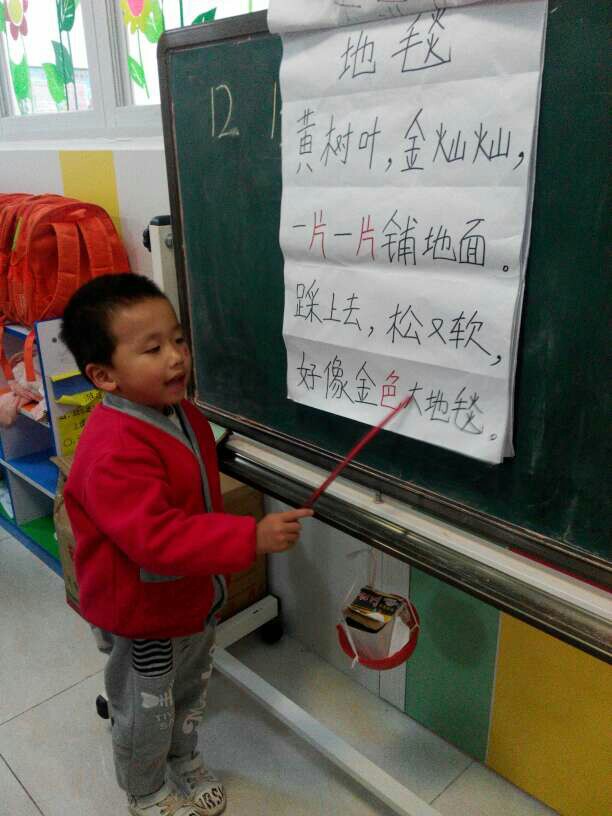 地毯
12 1
黄树叶,金灿灿,
一片一片铺地面。
踩上去,松又软,
好像金色大地毯。